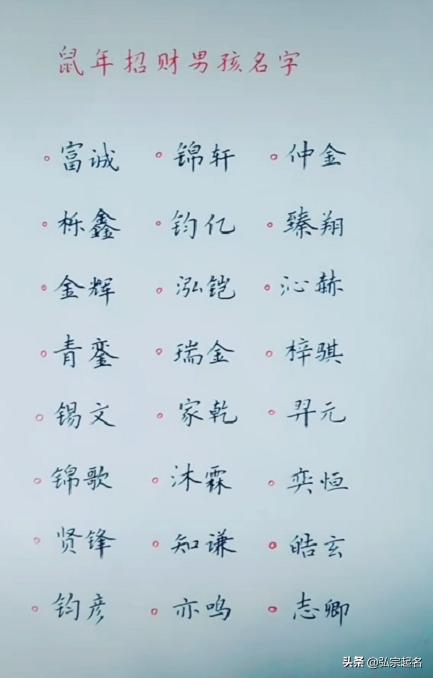 鼠年招财男孩名字
富诚 锦轩 仲金
栎鑫 钧亿 臻翔
金辉 泓铠 沁赫
青銮 瑞金 梓骐
锡文 家乾 羿元
锦歌 沐霖 奕恒
贤锋 知谦 皓玄
钧彦 亦鸣 志卿
头条 @弘宗起名